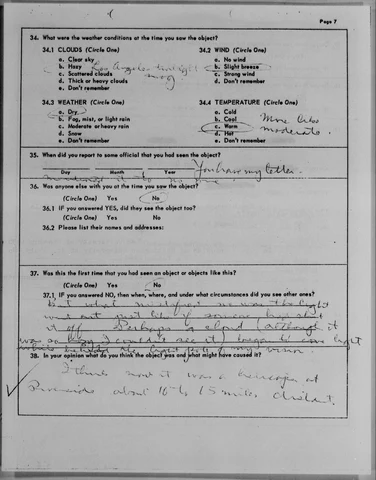 Page 7
34. What were the weather conditions at the time you saw the object?
34.1 CLOUDS (Circle One) 34.2 WIND (Circle One)
a. Clear sky a. No wind
b. Hazy Los Angeles b. Slight breeze
c. Scattered clouds smog c. Strong wind
d. Thick or heavy clouds d. Don't remember
e. Don't remember
34.3 WEATHER (Circle One) 34.4 TEMPERATURE (Circle One)
a. Dry a. Cold
b. Fog, mist, or light rain b. Cool More like
c. Moderate or heavy rain c. Warm moderate.
d. Snow d. Hot
e. Don't remember e. Don't remember
35. When did you report to some official that you had seen the object?
You have my letter.
Day Month Year
mentioned it to no one
36. Was anyone else with you at the time you saw the object?
(Circle One) Yes No
36.1 IF you answered YES, did they see the object too?
(Circle One) Yes No
36.2 Please list their names and addresses:
37. Was this the first time that you had seen an object or objects like this?
(Circle One) Yes No
37.1 IF you answered NO, then when, where, and under what circumstances did you see other ones?
But what mystifies me was the light
went out just like if someone had shut
it off. Perhaps a cloud (although it
was so hazy I couldn't see it) began to cover light
38. In your opinion what do you think the object was and what might have caused it?
I think now it was a helicopter at
about 10 to 15 miles distant.